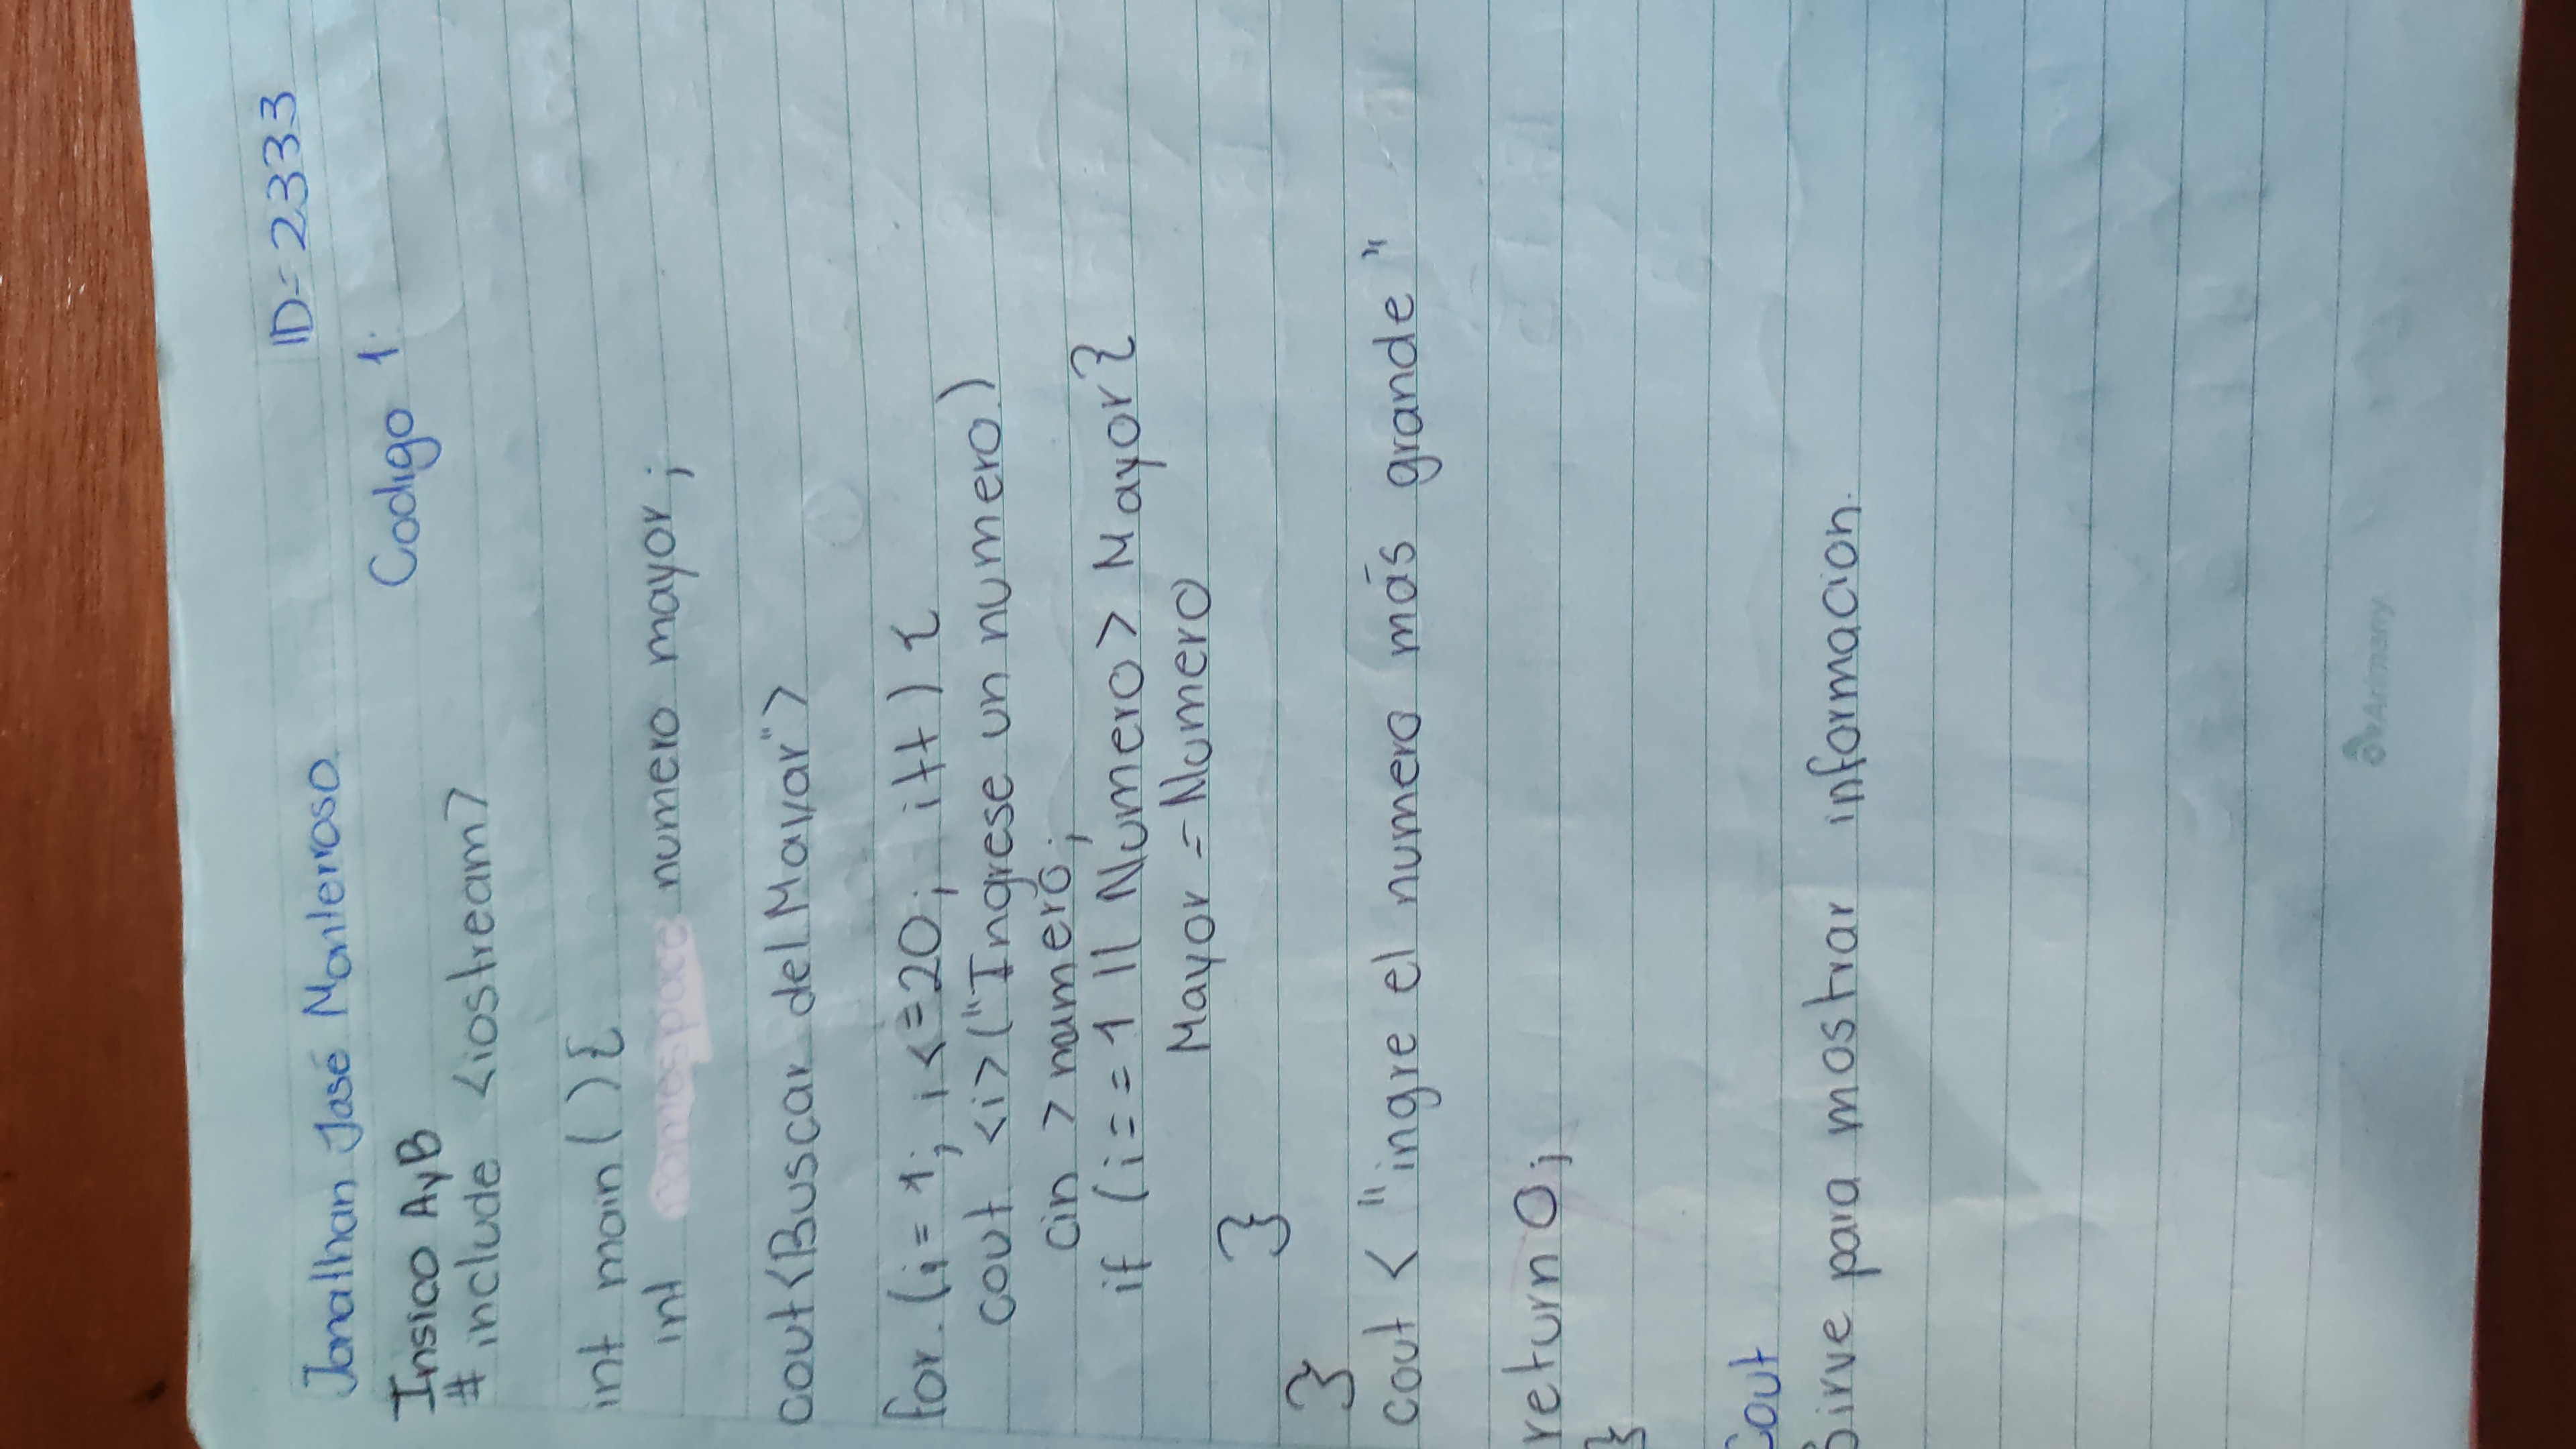 Jonathan José Monterroso ID=2333
Insico AyB Codigo 1.
# include <iostream>
int main () {
int numero mayor;
cout <Buscar del Mayor">
for. (i = 1; i <= 20; i++) {
cout <i> ("Ingrese un numero.)
cin > numero;
if (i == 1 || Numero > Mayor {
Mayor = Numero
}
}
cout < "ingre el numero más grande"
return 0;
}
Cout
Sirve para mostrar informacion.
Arimany